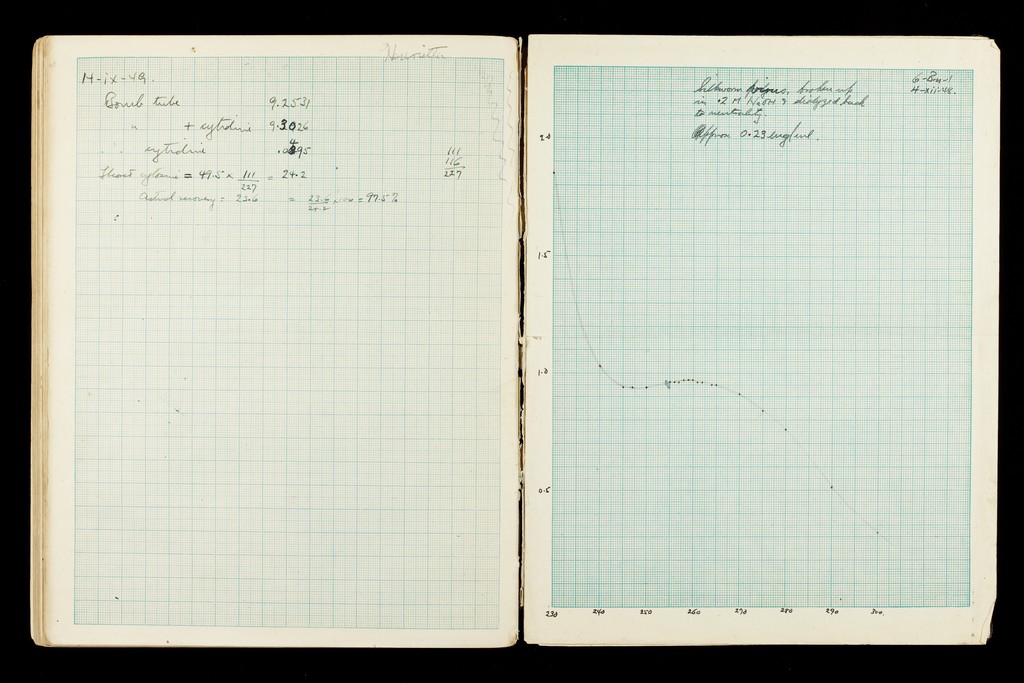 14-ix-49.
Bomb tube 9.2531
" + cytidine 9.3026
" cytidine .0495
111
116
227
Theoret cytosine = 49.5 x 111/227 = 24.2
Actual recovery = 23.6 = 23.6/24.2 x 100 = 97.5%
6-Bm-1
4-xii-48.
Silkworm virus, broken up
in .2 M NaOH & dialyzed back
to neutrality.
Approx 0.23 mg/ml.
2.0
1.5
1.0
0.5
230 240 250 260 270 280 290 300.